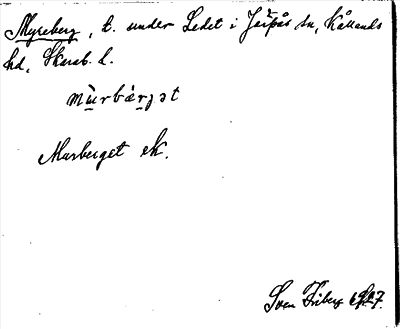 Myreberg, t. under Ledet i Järpås sn, Kållands
hd, Skarab. l.
mùrbár̯jət
Murberget ek.
Sven Friberg 1927.